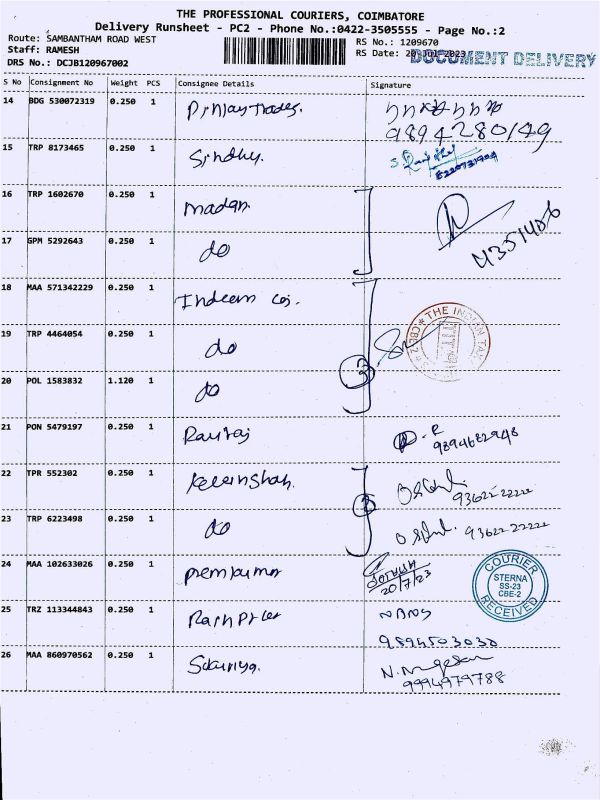 THE PROFESSIONAL COURIERS, COIMBATORE
Delivery Runsheet - PC2 - Phone No.:0422-3505555 - Page No.:2
Route: SAMBANTHAM ROAD WEST
Staff: RAMESH
DRS No.: DCJB120967002
RS No.: 1209670
RS Date: 20 Jul 2023
DOCUMENT DELIVERY
S No Consignment No Weight PCS Consignee Details Signature
14 BDG 530072319 0.250 1
9894280149
15 TRP 8173465 0.250 1 Sindhu.
16 TRP 1602670 0.250 1 madan
17 GPM 5292643 0.250 1 do
4351406
18 MAA 571342229 0.250 1
19 TRP 4464054 0.250 1 do
THE INDIAN
20 POL 1583832 1.120 1 do
3
21 PON 5479197 0.250 1 Raviraj
9894682948
22 TPR 552302 0.250 1
93622 22222
2
23 TRP 6223498 0.250 1 do 93622 22222
24 MAA 102633026 0.250 1 premkumar
20/7/23
COURIER
STERNA
SS-23
CBE-2
RECEIVED
25 TRZ 113344843 0.250 1
9894503030
26 MAA 860970562 0.250 1
9994979788